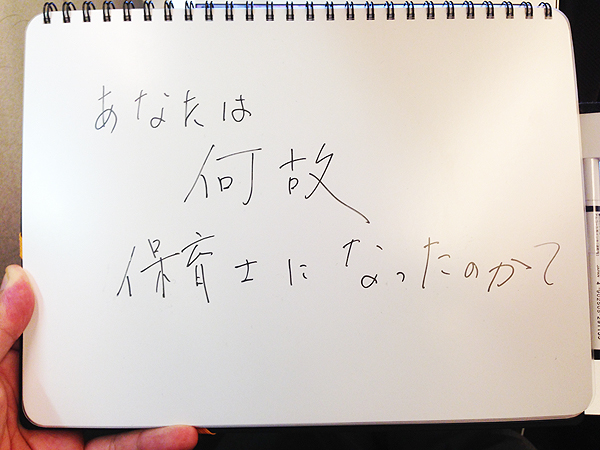 あなたは
何故
保育士になったのかて